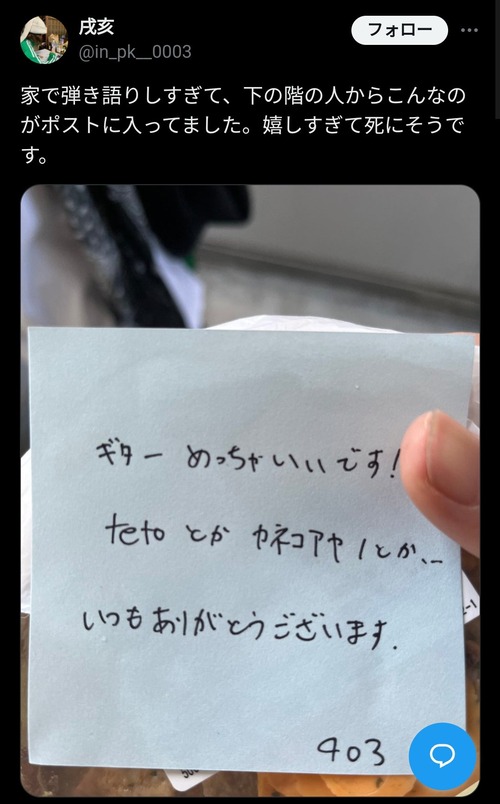 戌亥
@in_pk__0003
フォロー
家で弾き語りしすぎて、下の階の人からこんなの
がポストに入ってました。嬉しすぎて死にそうで
す。
ギター めっちゃいいです!
teto とか カネコアヤノとか、、
いつもありがとうございます.
403